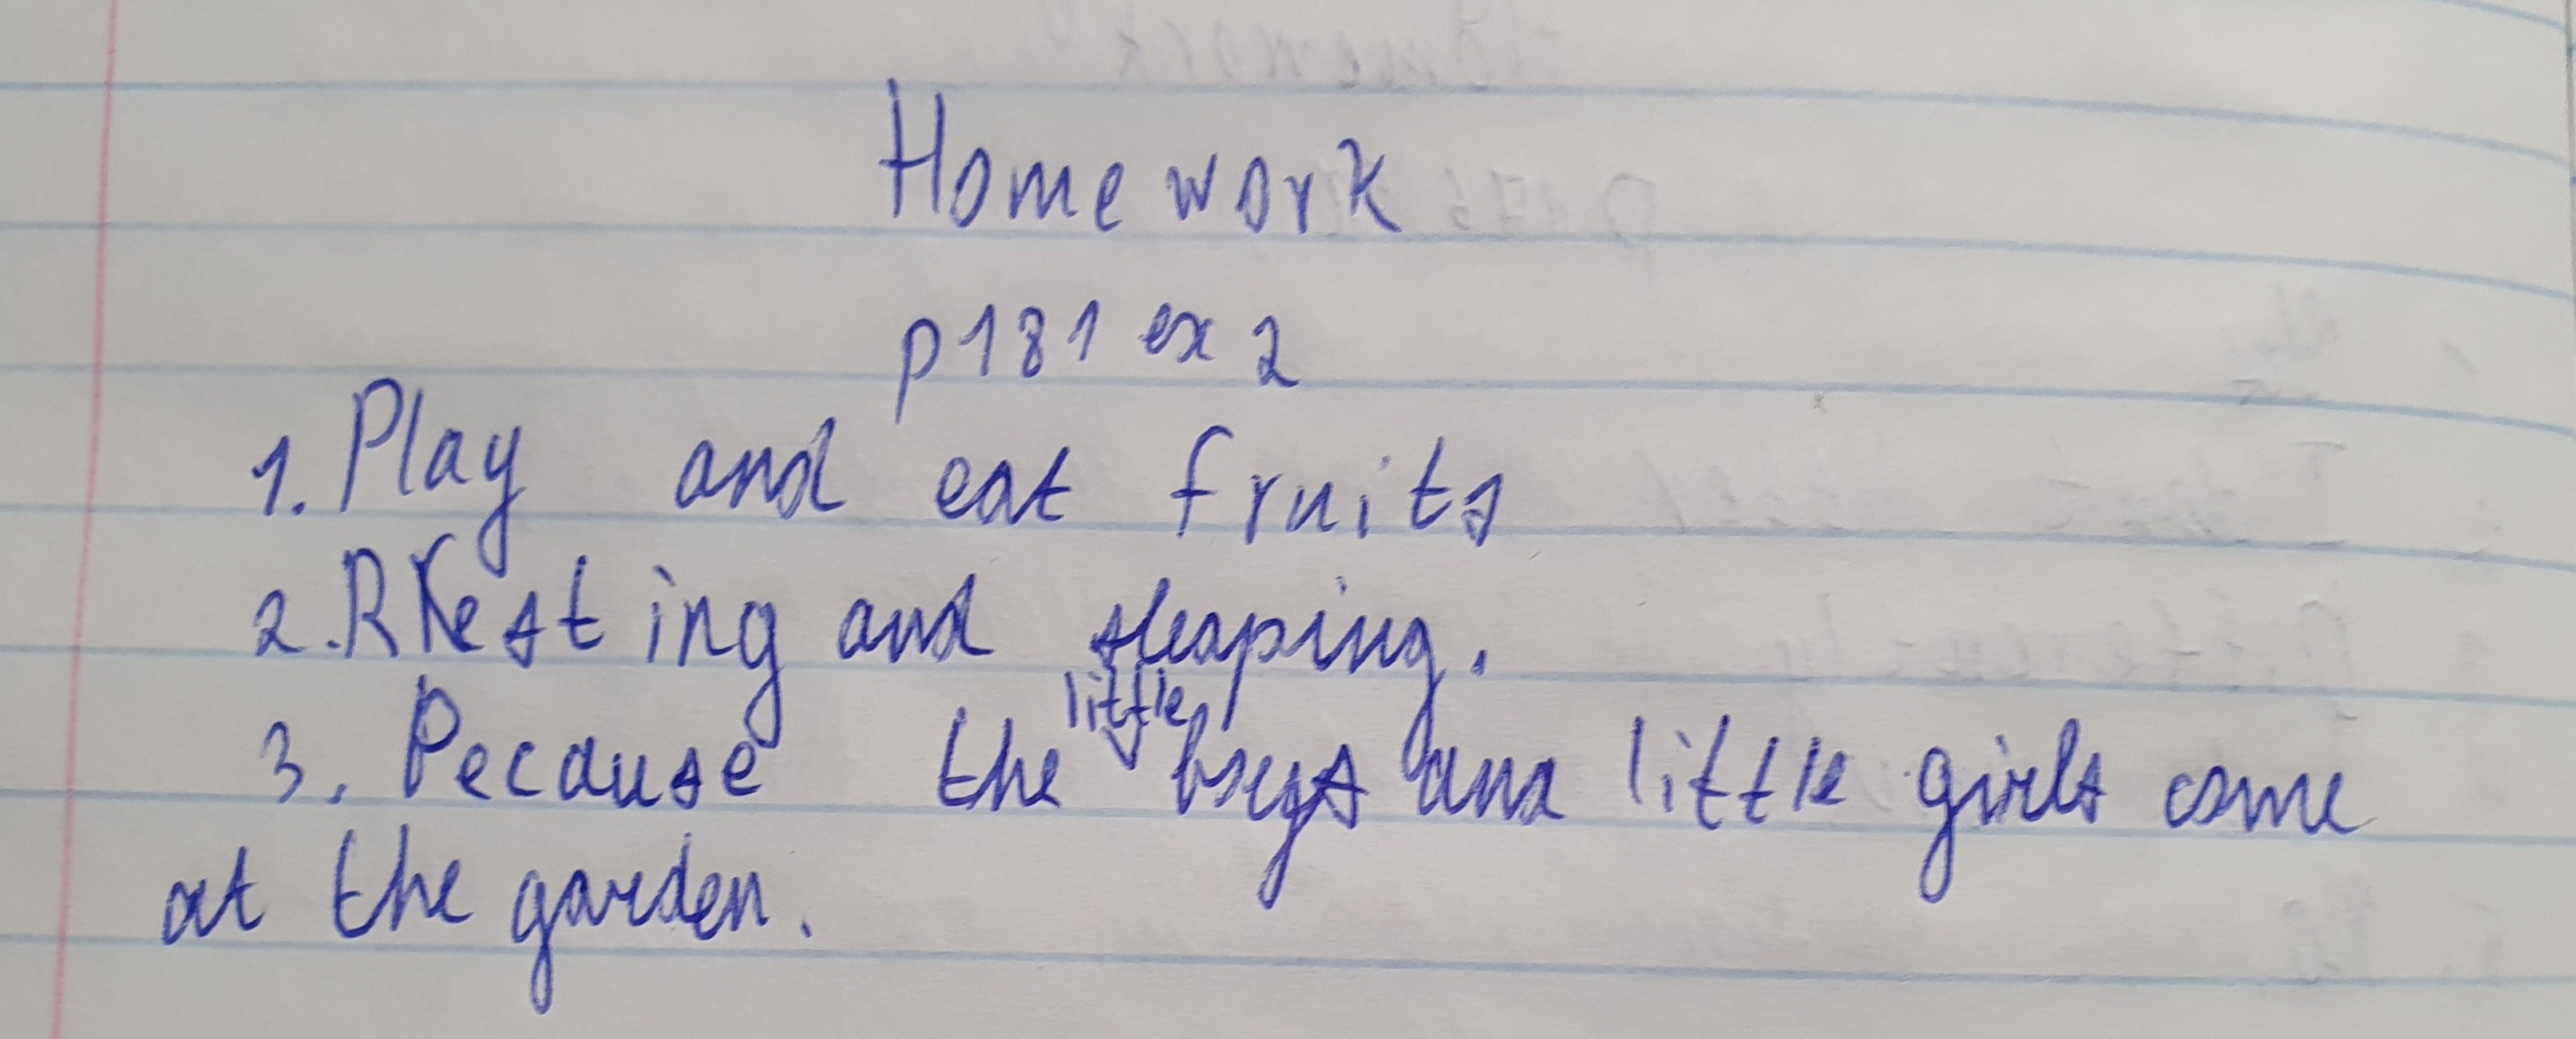 Homework
p181 ex 2
1. Play and eat fruits
2. Resting and sleaping.
3. Pecause the little boys and little girls come
at the garden.